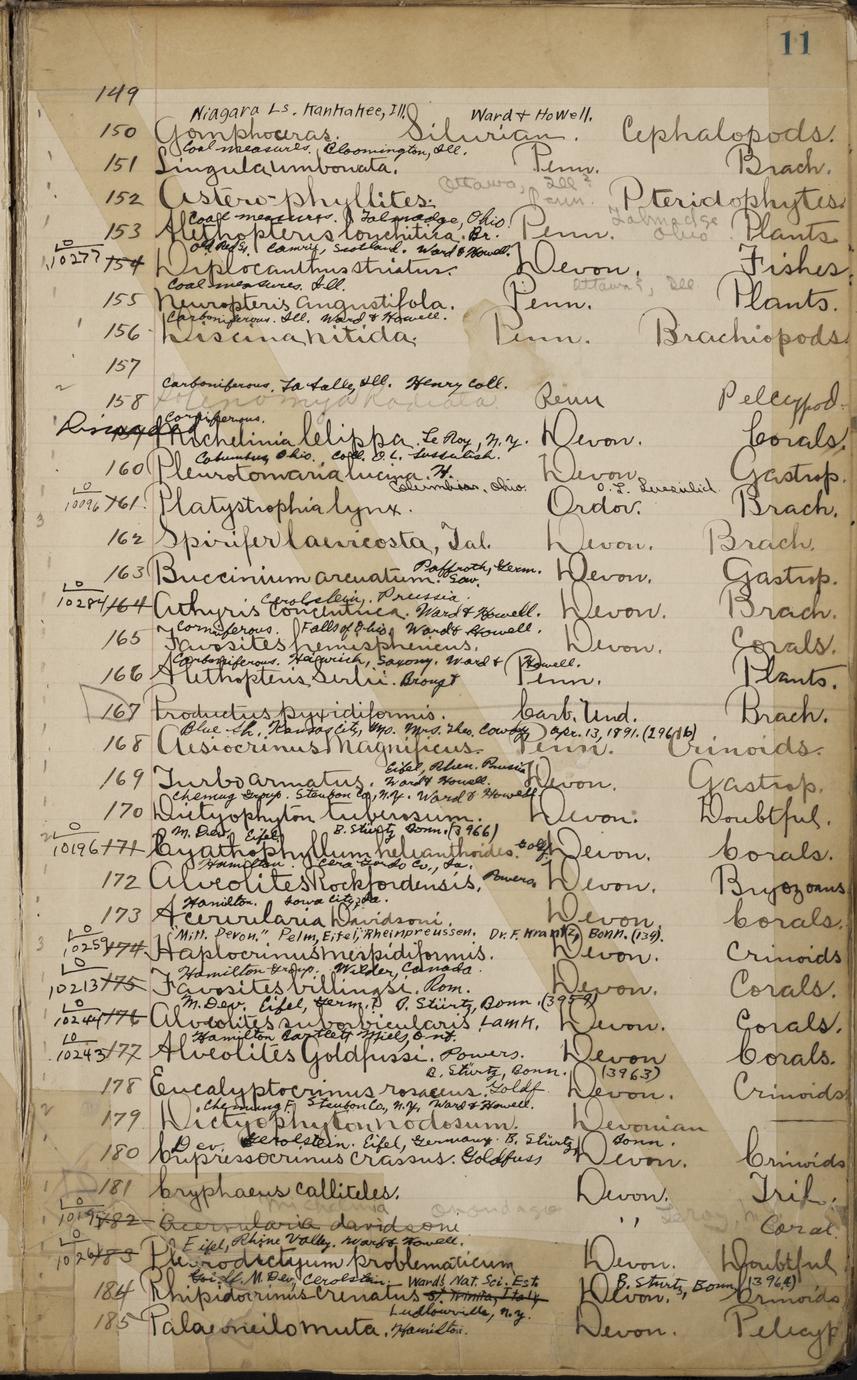 11
149
Niagara Ls. Kankakee, Ill. Ward & Howell.
150 Gomphoceras. Silurian. Cephalopods.
Coal measures. Bloomington, Ill.
151 Lingula umbonata. Penn. Brach.
Ottawa, Ill
152 Astero-phyllites. Penn. Pteridophytes.
Coal measures. Talmadge, Ohio. Talmadge Ohio
153 Alethopteris lonchitica. Br. Penn. Plants
Old Red S. Camry, Scotland. Ward & Howell.
10277 154 Diplocanthus striatus. Devon. Fishes.
Coal measures. Ill. Ottawa, Ill
155 Neuropteris angustifola. Penn. Plants.
Carboniferous. Ill. Ward & Howell.
156 Discina nitida. Penn. Brachiopods
157
Carboniferous. La Salle, Ill. Henry Coll.
158 Solenomya Radiata Penn Pelecypod.
Corniferous.
Michelinia lelippa. Le Roy, N.Y. Devon. Corals.
Columbus, Ohio. Coll. O.L.
160 Pleurotomaria lucina. H. Devon. Gastrop.
Columbus, Ohio.
10096 161 Platystrophia lynx. Ordov. Brach.
162 Spirifer laevicosta, Val. Devon. Brach.
Paffroth, Germ.
163 Buccinium arcuatum. Devon. Gastrop.
Gerolstein, Prussia.
10284 164 Athyris concentrica. Ward & Howell. Devon. Brach.
Corniferous. Falls of Ohio. Ward & Howell.
165 Favosites hemisphericus. Devon. Corals.
Carboniferous. Saxony. Ward & Howell.
166 Alethopteris Serlii. Brongt Penn. Plants.
167 Productus pyxidiformis. Carb. Und. Brach.
Blue Sh. Kansas City, Mo. Mrs. Theo. Cowdry Apr. 13, 1891. (2961b)
168 Aesiocrinus Magnificus. Penn. Crinoids.
Eifel, Rhen. Prussia
169 Turbo armatus. Ward & Howell. Devon. Gastrop.
Chemung Group. Steuben Co., N.Y. Ward & Howell
170 Dictyophyton tuberosum. Devon. Doubtful.
M. Dev. Eifel, B. Stürtz, Bonn. (3966)
10196 171 Cyathophyllum helianthoides. Goldf Devon. Corals.
Hamilton. Cerro Gordo Co., Ia.
172 Alveolites Rockfordensis. Powers. Devon. Bryozoans
Hamilton. Iowa City, Ia.
173 Acervularia Davidsoni. Devon. Corals.
"Mitt. Devon." Pelm, Eifel, Rheinpreussen. Dr. F. Krantz, Bonn. (139).
10259 174 Haplocrinus mespidiformis. Devon. Crinoids
Hamilton Group. Widder, Canada.
10213 175 Favosites billingsi. Rom. Devon. Corals.
M. Dev. Eifel, Germ. B. Stürtz, Bonn. (3959)
10244 176 Alveolites suborbicularis Lamk. Devon. Corals.
Hamilton Bartlett Mills, Ont.
10243 177 Alveolites Goldfussi. Powers. Devon Corals.
B. Stürtz, Bonn. (3963)
178 Eucalyptocrinus rosaceus. Goldf. Devon. Crinoids
Chemung F. Steuben Co., N.Y. Ward & Howell.
179 Dictyophyton nodosum. Devonian
Dev. Gerolstein. Eifel, Germany. B. Stürtz, Bonn.
180 Cupressocrinus crassus. Goldfuss Devon. Crinoids
181 Cryphaeus calliteles. Devon. Tril.
Onondaga
10195 182 Acervularia davidsone " Coral.
Eifel, Rhine Valley. Ward & Howell.
10261 183 Pleurodictyum problematicum Devon. Doubtful
M. Dev. Gerolstein Ward's Nat. Sci. Est. B. Stürtz, Bonn (3964)
184 Rhipidocrinus crenatus Devon. Crinoids
Ludlowville, N.Y.
185 Palaeoneilo muta. Hamilton. Devon. Pelecyp